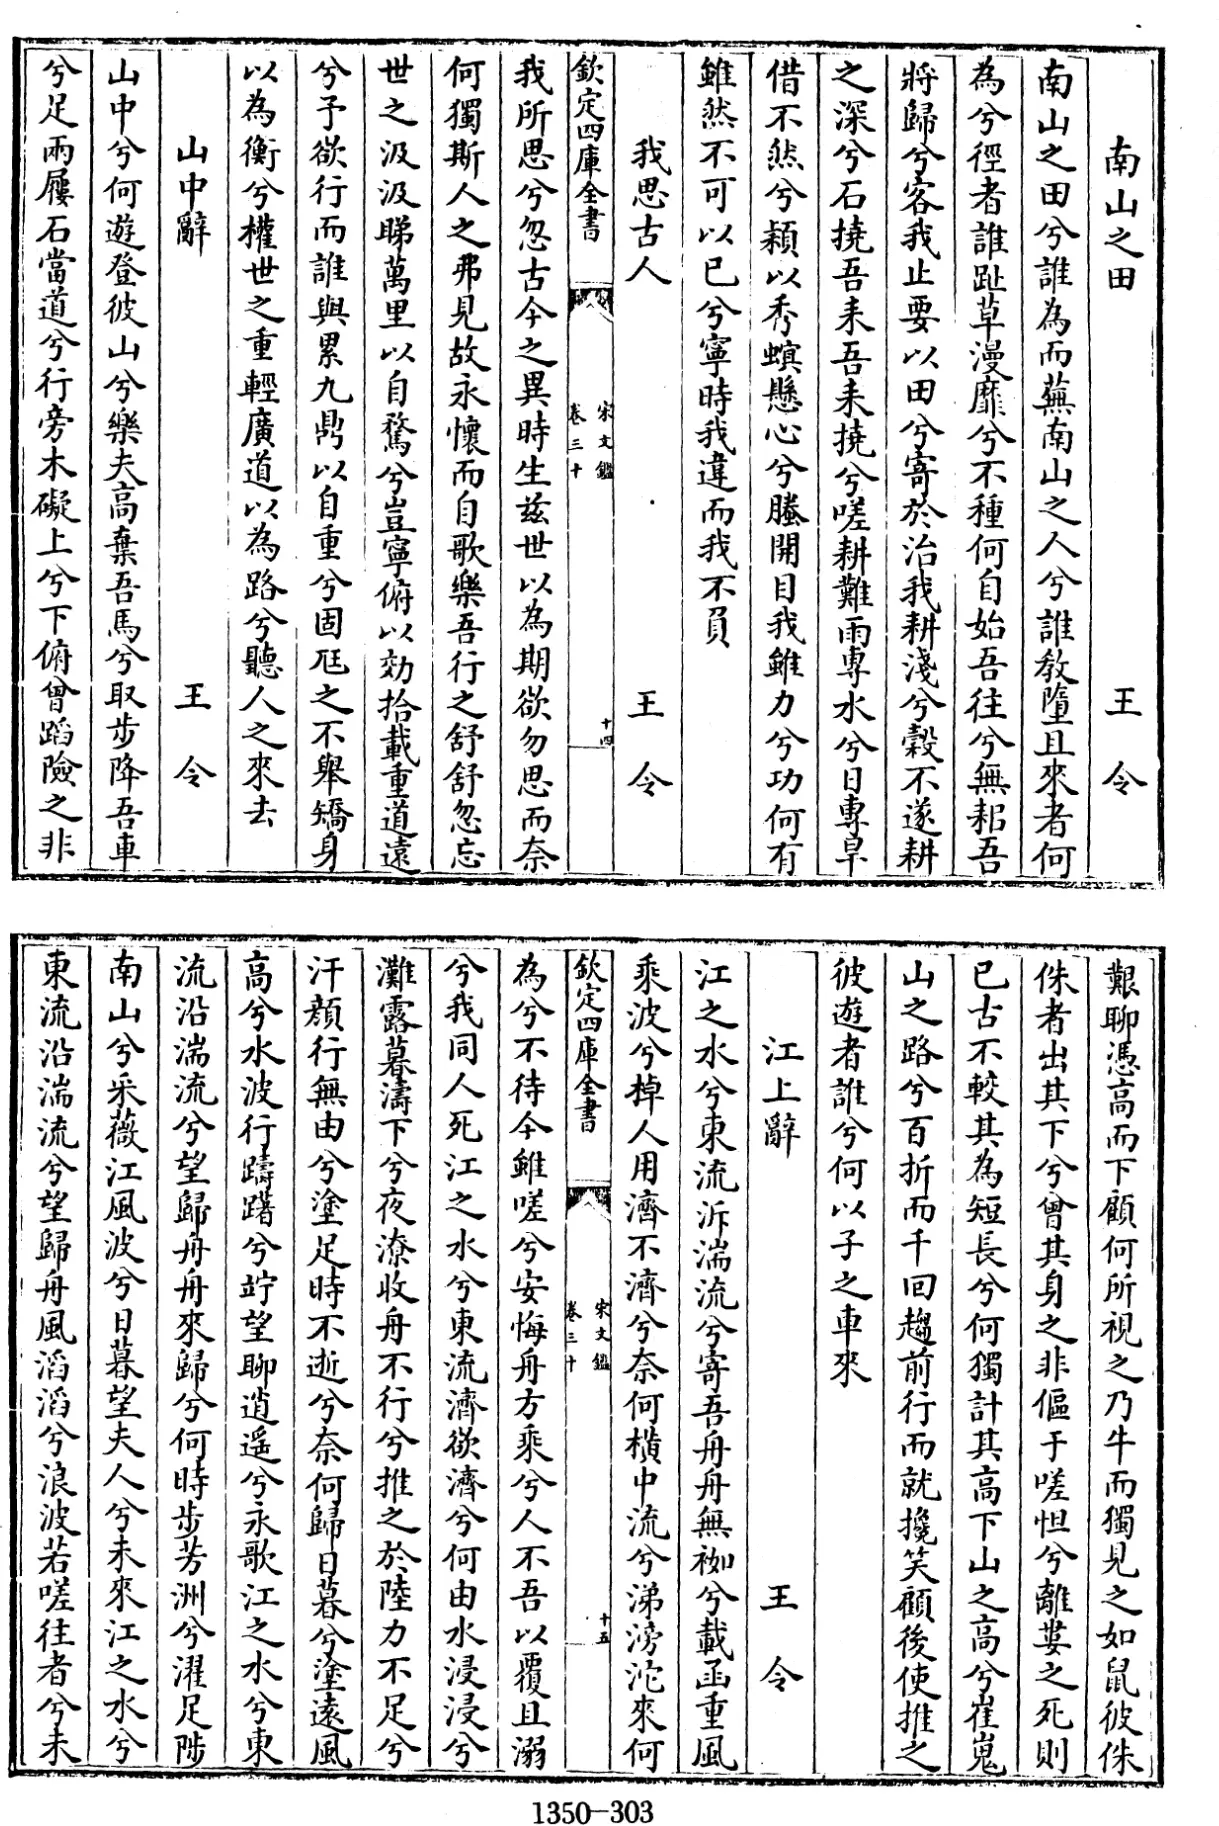 南山之田 王令
南山之田兮誰為而蕪南山之人兮誰教墮且來者何
為兮徑者誰趾草漫靡兮不種何自始吾往兮無耜吾
將歸兮客我止要以田兮寄於治我耕淺兮穀不遂耕
之深兮石撓吾耒吾耒撓兮嗟耕難雨專水兮日專旱
借不然兮穎以秀螟懸心兮螣開目我雖力兮功何有
雖然不可以已兮寧時我違而我不負
我思古人 王令
欽定四庫全書
宋文鑑
卷三十
十四
我所思兮忽古今之異時生茲世以為期欲勿思而奈
何獨斯人之弗見故永懷而自歌樂吾行之舒舒忽忘
世之汲汲睇萬里以自驁兮豈寧俯以効拾載重道遠
兮予欲行而誰與累九鼎以自重兮固尫之不舉矯身
以為衡兮權世之重輕廣道以為路兮聽人之來去
山中辭 王令
山中兮何遊登彼山兮樂夫高棄吾馬兮取步降吾車
兮足兩屨石當道兮行旁木礙上兮下俯曾蹈險之非
艱聊憑高而下顧何所視之乃牛而獨見之如鼠彼侏
侏者出其下兮曾其身之非傴于嗟怛兮離婁之死則
已古不較其為短長兮何獨計其高下山之高兮崔嵬
山之路兮百折而千回趨前行而就攙笑顧後使推之
彼遊者誰兮何以子之車來
江上辭 王令
江之水兮東流泝湍流兮寄吾舟舟無袽兮載函重風
乘波兮棹人用濟不濟兮奈何橫中流兮涕滂沱來何
欽定四庫全書
宋文鑑
卷三十
十五
為兮不待今雖嗟兮安悔舟方乘兮人不吾以覆且溺
兮我同人死江之水兮東流濟欲濟兮何由水浸浸兮
灘露暮濤下兮夜潦收舟不行兮推之於陸力不足兮
汗顏行無由兮塗足時不逝兮奈何歸日暮兮塗遠風
高兮水波行躊躇兮竚望聊逍遥兮永歌江之水兮東
流沿湍流兮望歸舟舟來歸兮何時步芳洲兮濯足陟
南山兮采薇江風波兮日暮望夫人兮未來江之水兮
東流沿湍流兮望歸舟風滔滔兮浪波若嗟往者兮未
1350—303